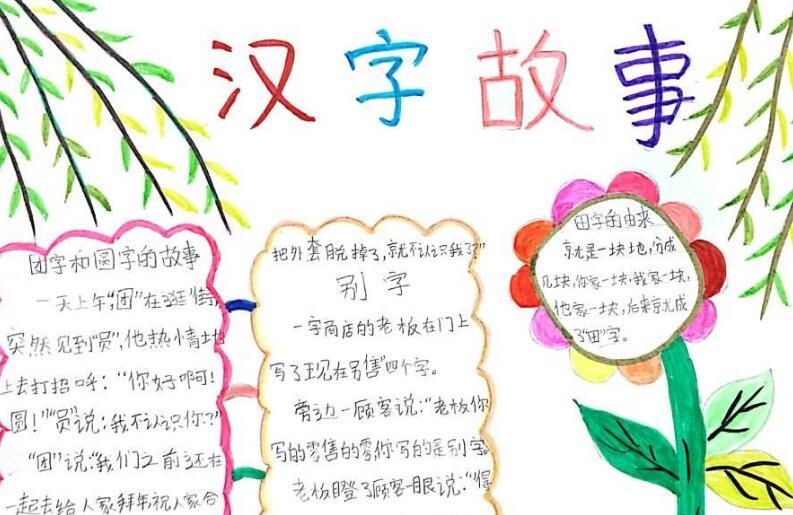 汉字故事
团字和圆字的故事
一天上午,“团”在逛街,
突然见到“员”,他热情地
上去打招呼:“你好啊!
圆!”“员”说:我不认识你?”
“团”说:“我们之前还在
一起去给人家拜年,祝人家合
把外套脱掉了,就不认识我了?”
别字
一字商店的老板在门上
写了“现在另售”四个字。
旁边一顾客说:“老板你
写的零售的零你写的是别字。
老板瞪了顾客一眼说:“得
田字的由来
就是一块地,分成
几块,你家一块,我家一块,
他家一块,后来就成
了“田”字。